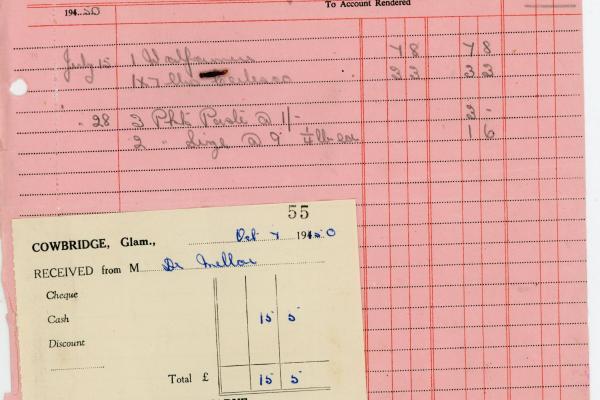 To Account Rendered
194..50
July 15 1 Walpamur 7 8 7 8
1 x 7 3 3 3 3
" 28 2 Pkts Paste @ 1/- 2 -
2 " Size @ 9 ¼ lb 1 6
55
COWBRIDGE, Glam., Oct 7 1950
RECEIVED from M Dr Mellor
Cheque
Cash 15 5
Discount
Total £ 15 5